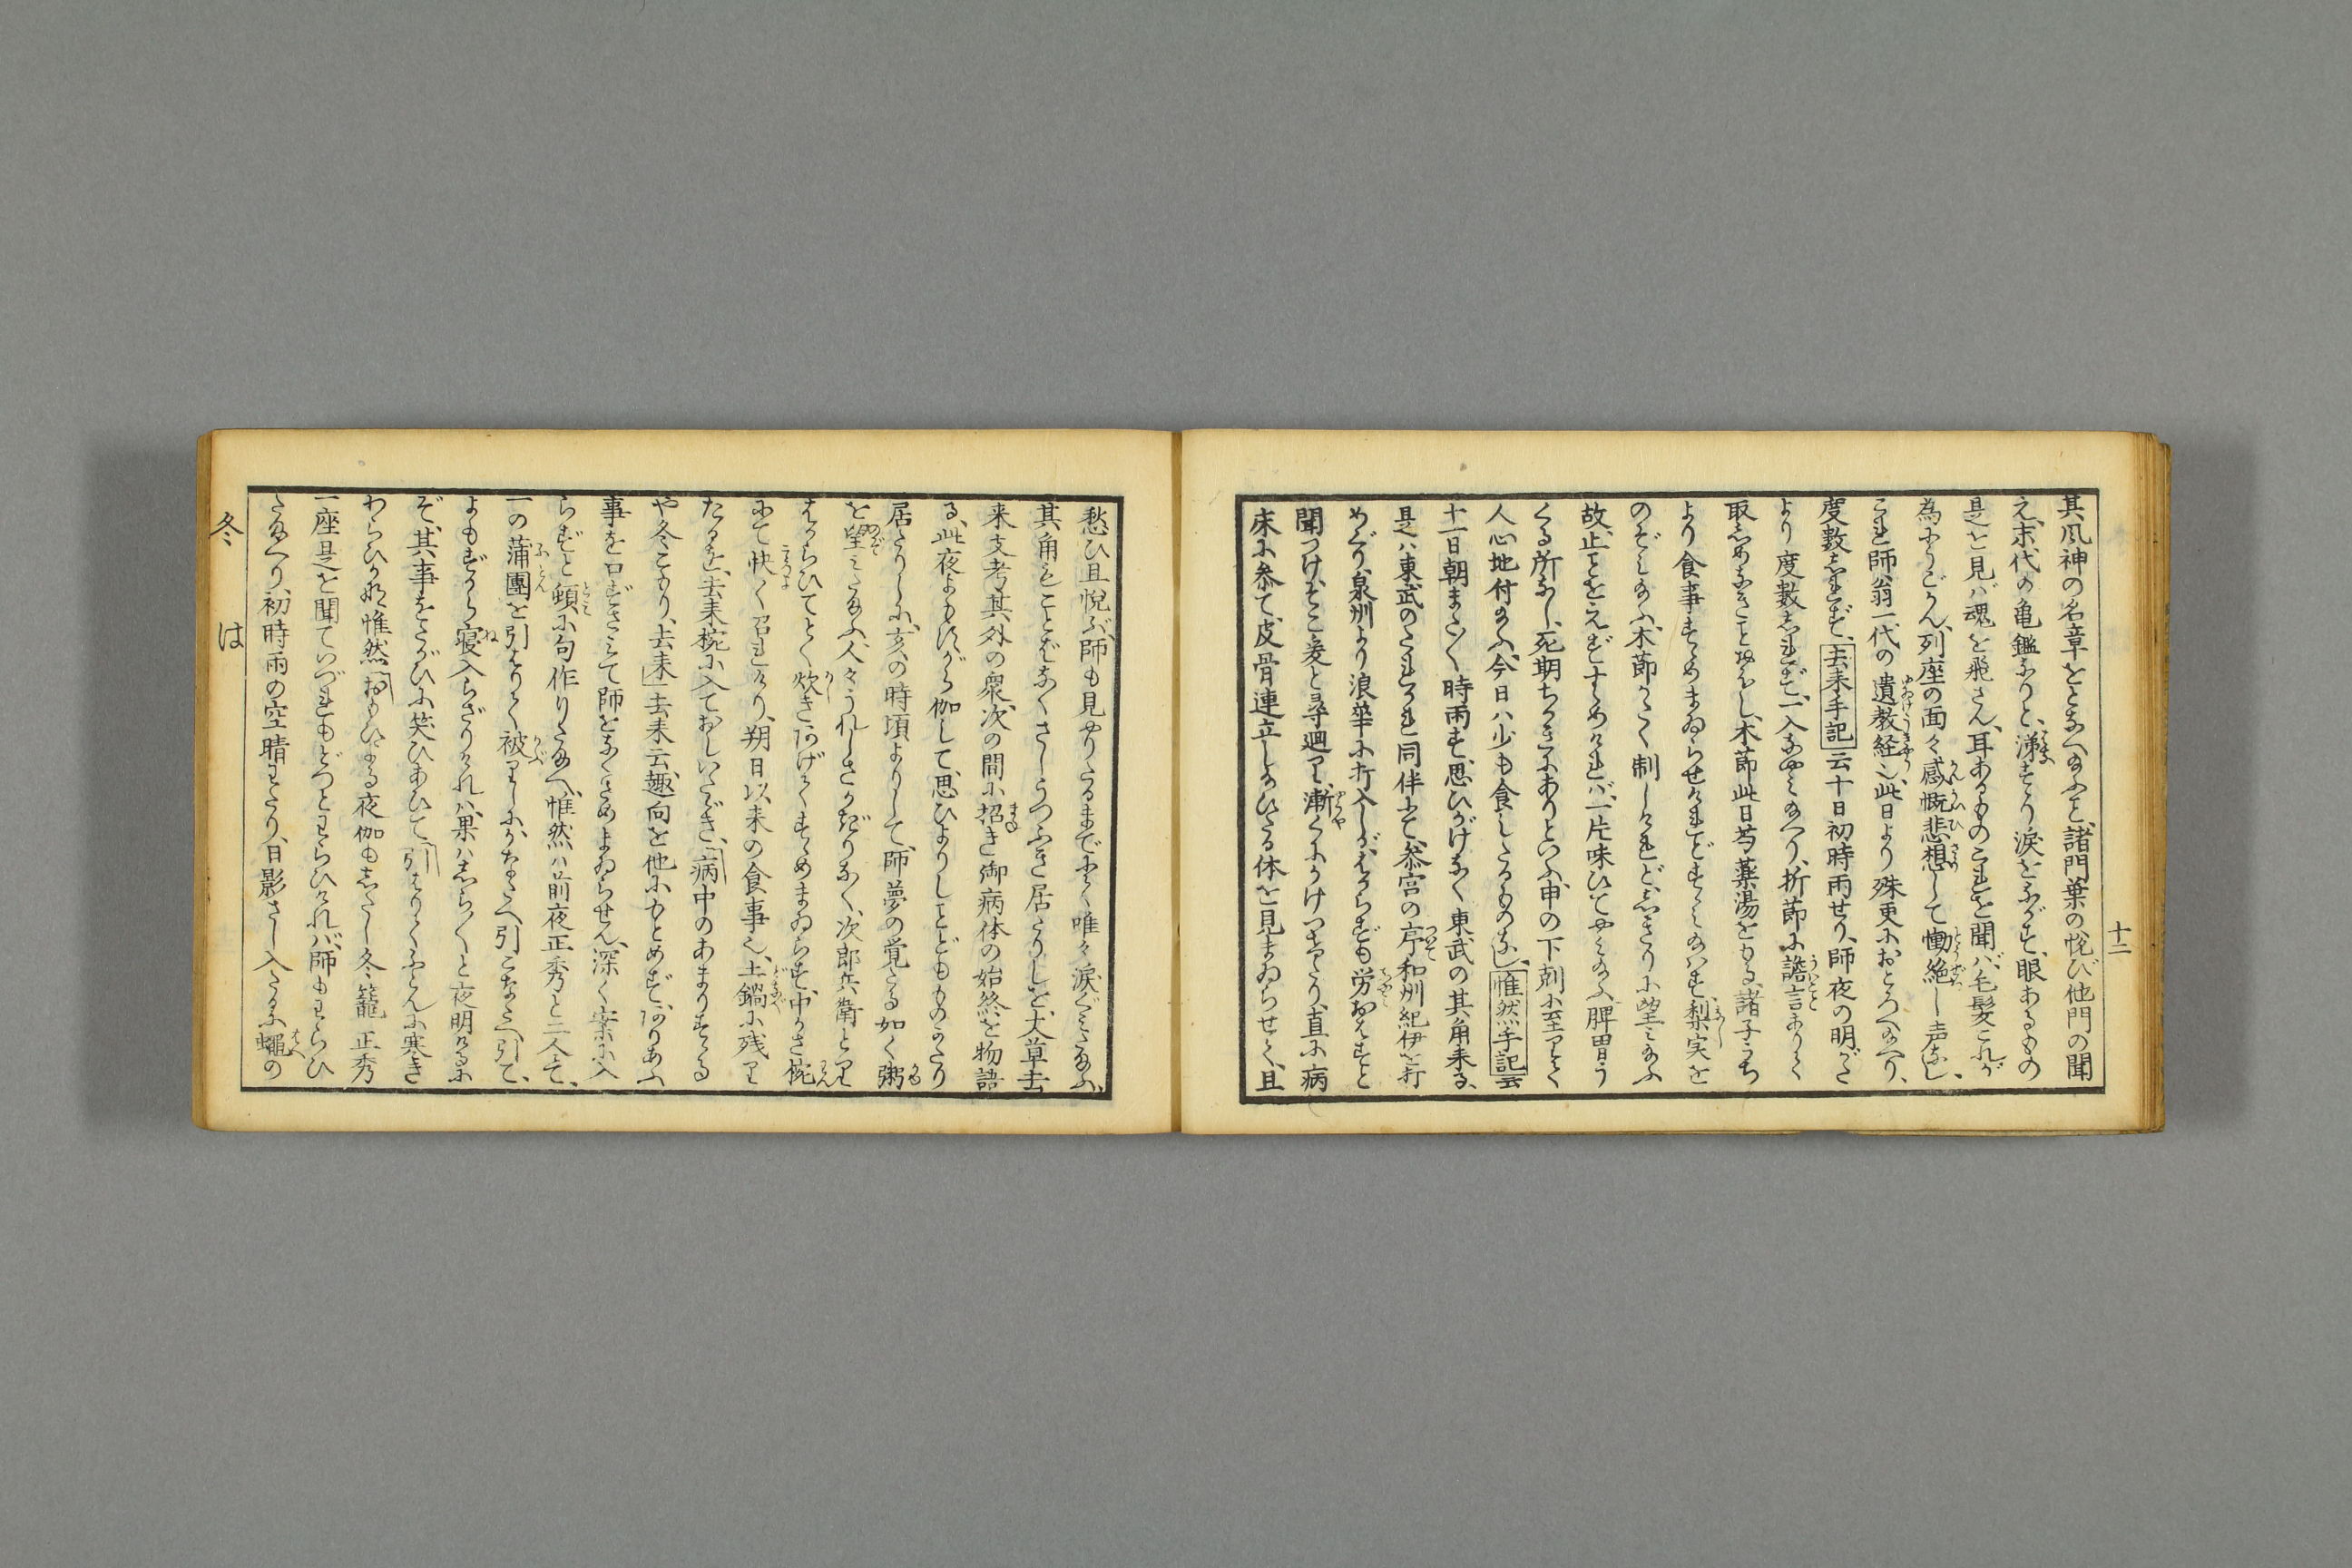 十二
其、風神の名章をとなへ給ふと、諸門葉の悦び他門の聞
え、末代の亀鑑なりと、涕すゝり涙をながす、眼あるもの
是を見ば魂を飛さん、耳あるものこれを聞ば毛髪これが
為にうごかん、列座の面々感慨悲想して慟絶し声なし、
これ師翁一代の遺教経也、此日より殊更におとろへ給へり、
度数しれず、去来手記云十日初時雨せり、師夜の明がた
より度数しれず、一入なやみ給へり、折節に譫言ありて
取しめなきことおほし、木節此日芍薬湯をもる、諸子うち
より食事すゝめまゐらせけれどすゝみ給はず、梨実を
のぞみ給ふ、木節かたく制しけれど、しきりに望み給ふ
故、止ことをえずすゝめければ、一片味ひてやみ給ふ、脾胃う
くる所なし、死期ちかきにありといふ、申の下剋に至りて
人心地付給ふ、今日ハ少も食したるものなし、惟然手記云
十一日朝またく時雨す、思ひがけなく東武の其角来る、
是ハ東武のたれかれ同伴にて、参宮の序和州紀伊を打
めぐり、泉州より浪華に打入しが、はからずも労おはすと
聞つけ、そこ爰と尋廻り、漸くにかけつけたり、直に病
床に参て、皮骨連立したひたる体を見まゐらせて、且
愁ひ且悦ぶ、師も見やりたるまでにて、唯々涙ぐみ給ふ、
其角もことばなく、さしうつふき居たりしを、丈草去
来支考其外の衆、次の間に招き、御病体の始終を物語
る、此夜よもすがら伽して、思ひよりしことどもものかたり
居たりしに、亥の時頃よりして、師夢の覚たる如く粥
を望み給ふ、人々うれしさかぎりなく、次郎兵衛とり
はからひてとく炊きあげてすゝめまゐらす、中かさ椀
にて快く召れけり、朔日以来の食事也、土鍋に残り
たるを、去来椀に入ておしいたゞき、「病中のあまりすゝる
や冬ごもり、去来」去来云趣向を他にもとめず、ありあふ
事を口ずさみて師をなぐさめまゐらせん、深く案に入
らずと頓に句作りたまへ、惟然ハ前夜正秀と二人にて、
一の蒲團を引はりて被りしに、かなたへ引こなたへ引て、
よもすがら寝入らざりけれハ、果ハしらくと夜明けるに
ぞ、其事をたがひに笑ひあひて、「引はりてふとんに寒き
わらひ哉 惟然「おもひよる夜伽もしたし冬籠 正秀
一座是を聞ていづれもどつとわらひけれバ、師もわらひ
たまへり、初時雨の空晴わたり、日影さし入たるに蠅の
冬 は